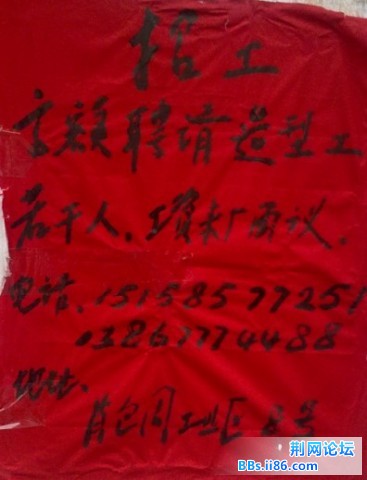 招工
高额聘请造型工
若干人.工资来厂面议.
电话.15158577251
13867774488
地址、
工业区8号
荆网论坛
BBs.ii86.com